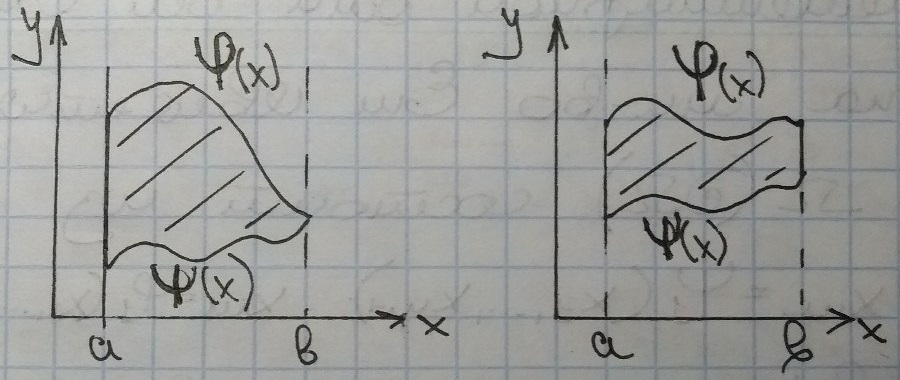 y φ(x) ψ(x) a b x
y φ(x) ψ(x) a b x